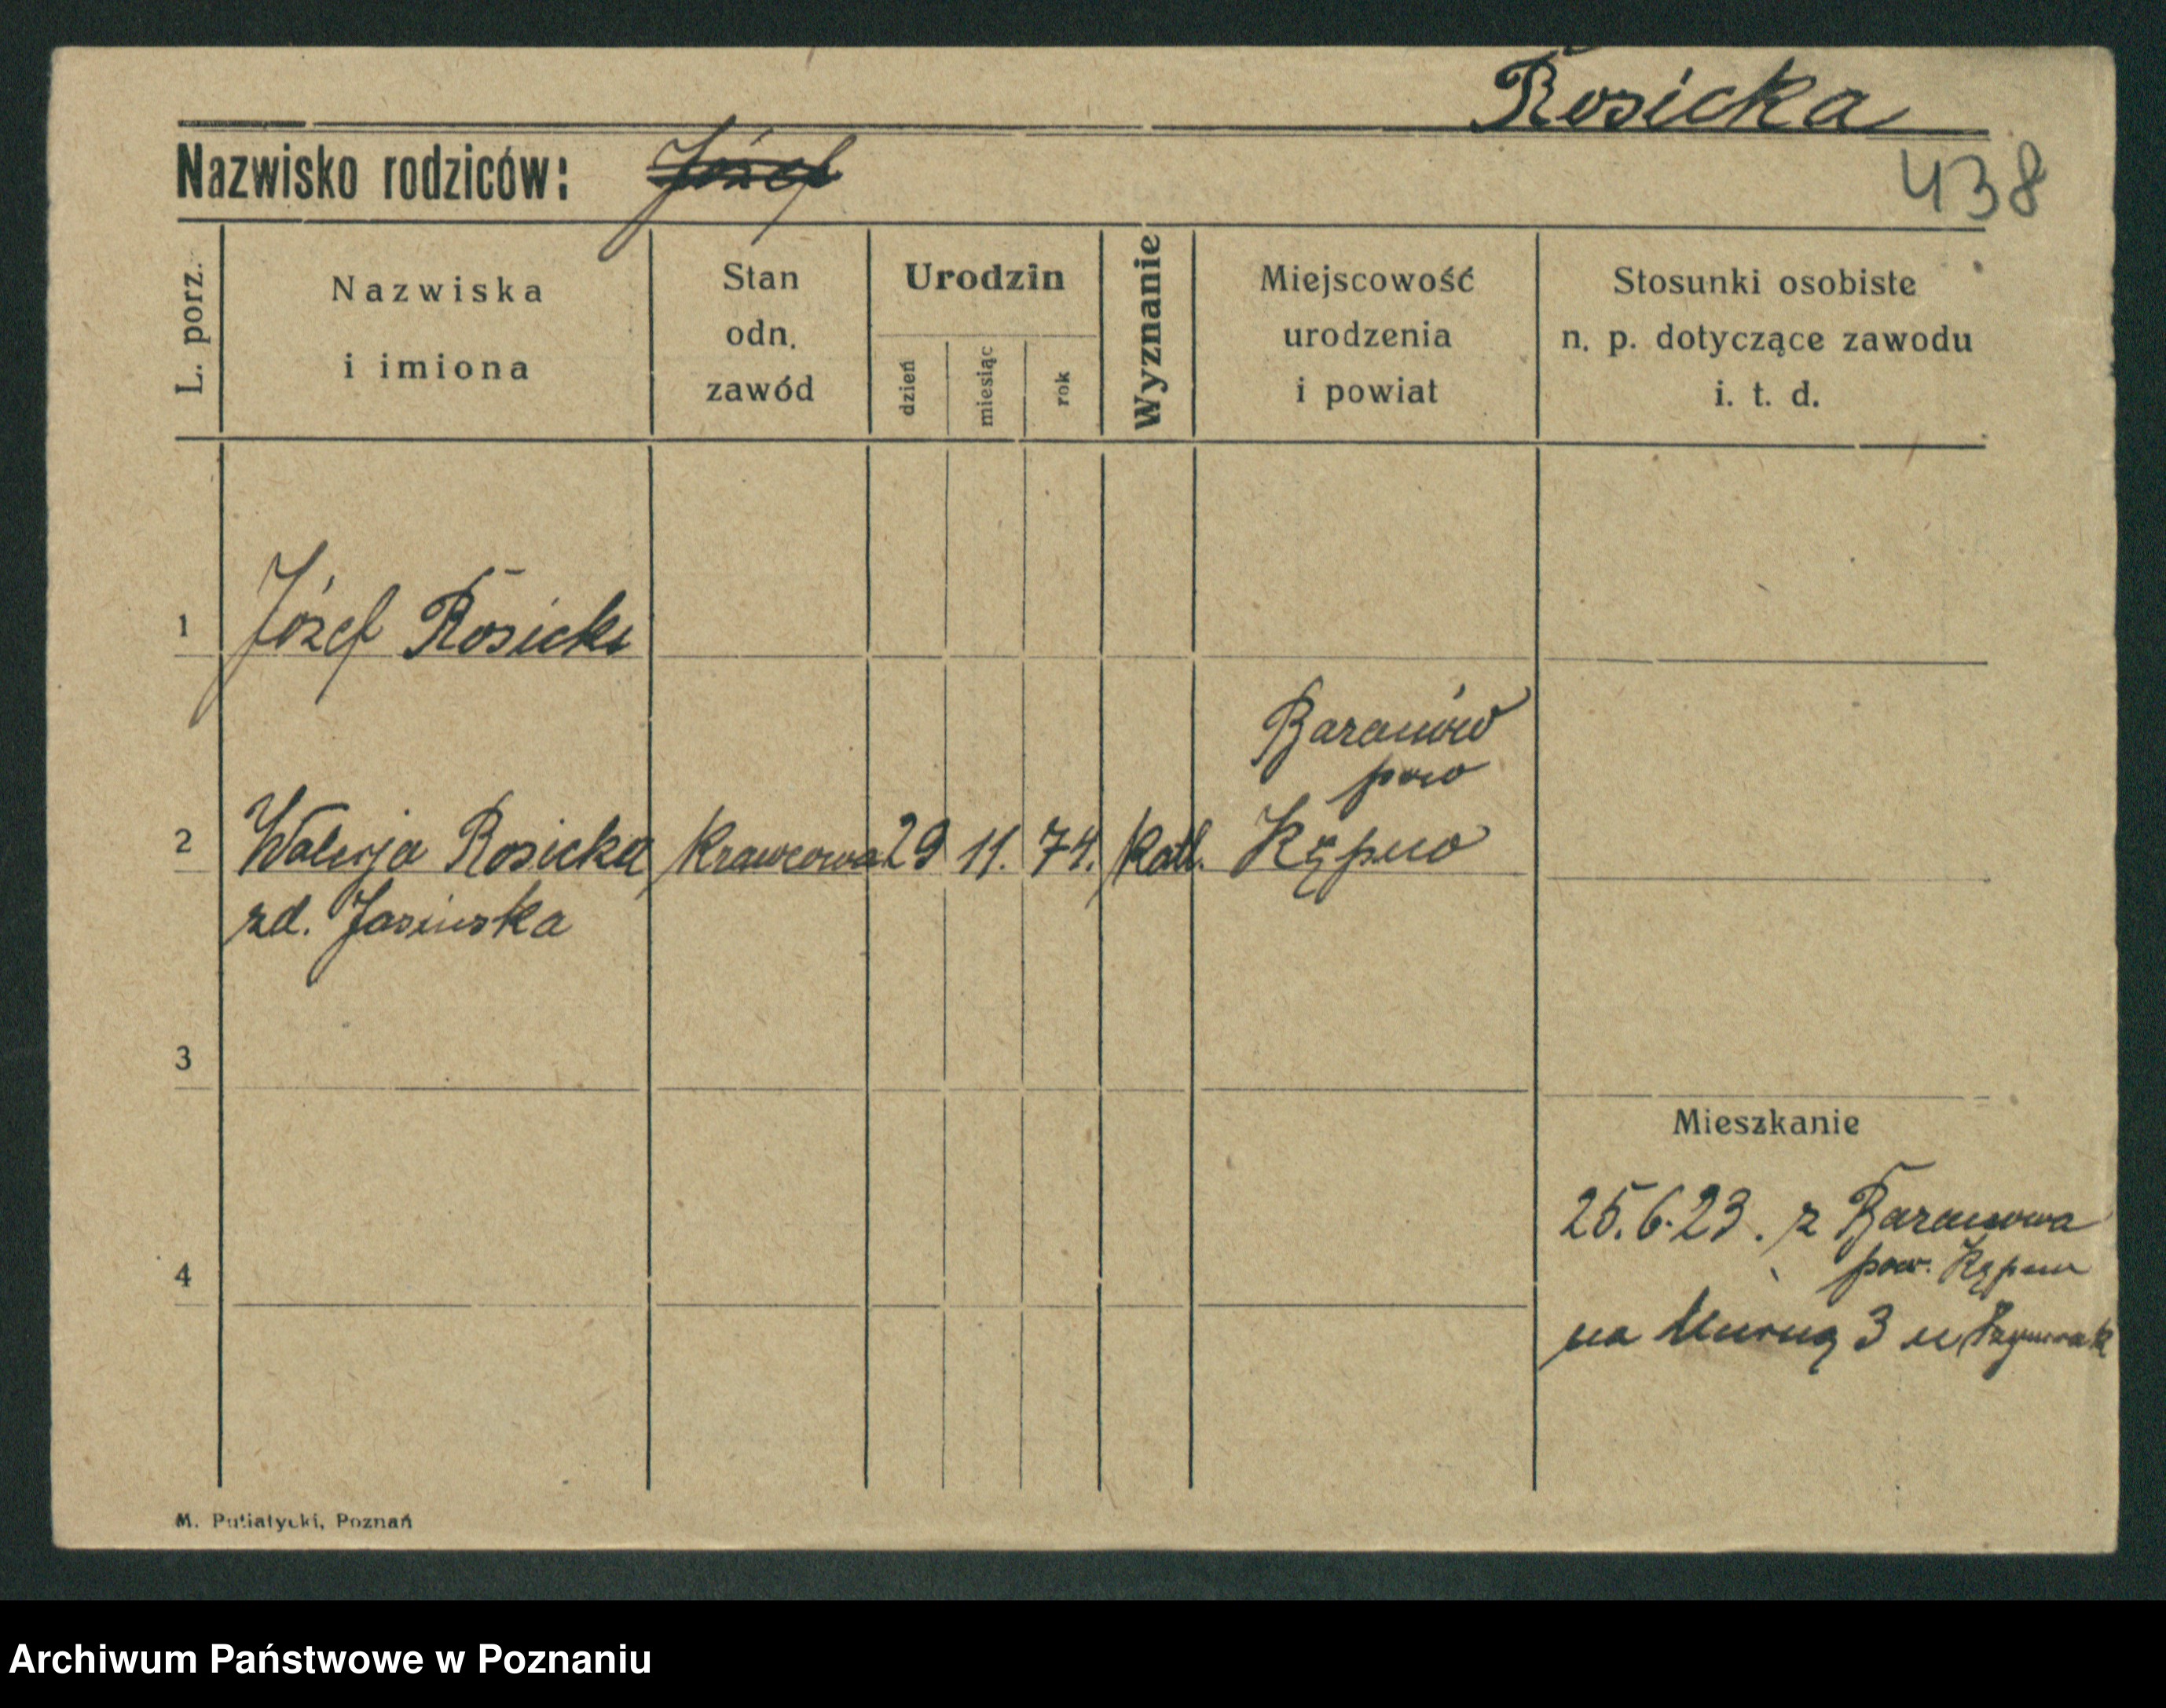 Rosicka
Nazwisko rodziców: Józef
438
L. porz.
Nazwiska
i imiona
Stan
odn.
zawód
Urodzin
dzień
miesiąc
rok
Wyznanie
Miejscowość
urodzenia
i powiat
Stosunki osobiste
n. p. dotyczące zawodu
i. t. d.
1 Józef Rosicki
Baranów
pow
2 Walerja Rosicka Krawcowa 29 11. 74. Katl. Kępno
zd. Jasinska
3
Mieszkanie
25.6.23. z Baranowa
4
pow. Kępno
na Murną 3 u
M. Putiatycki, Poznań
Archiwum Państwowe w Poznaniu